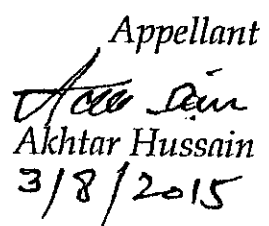 Appellant
Akhtar Hussain
3/8/2015